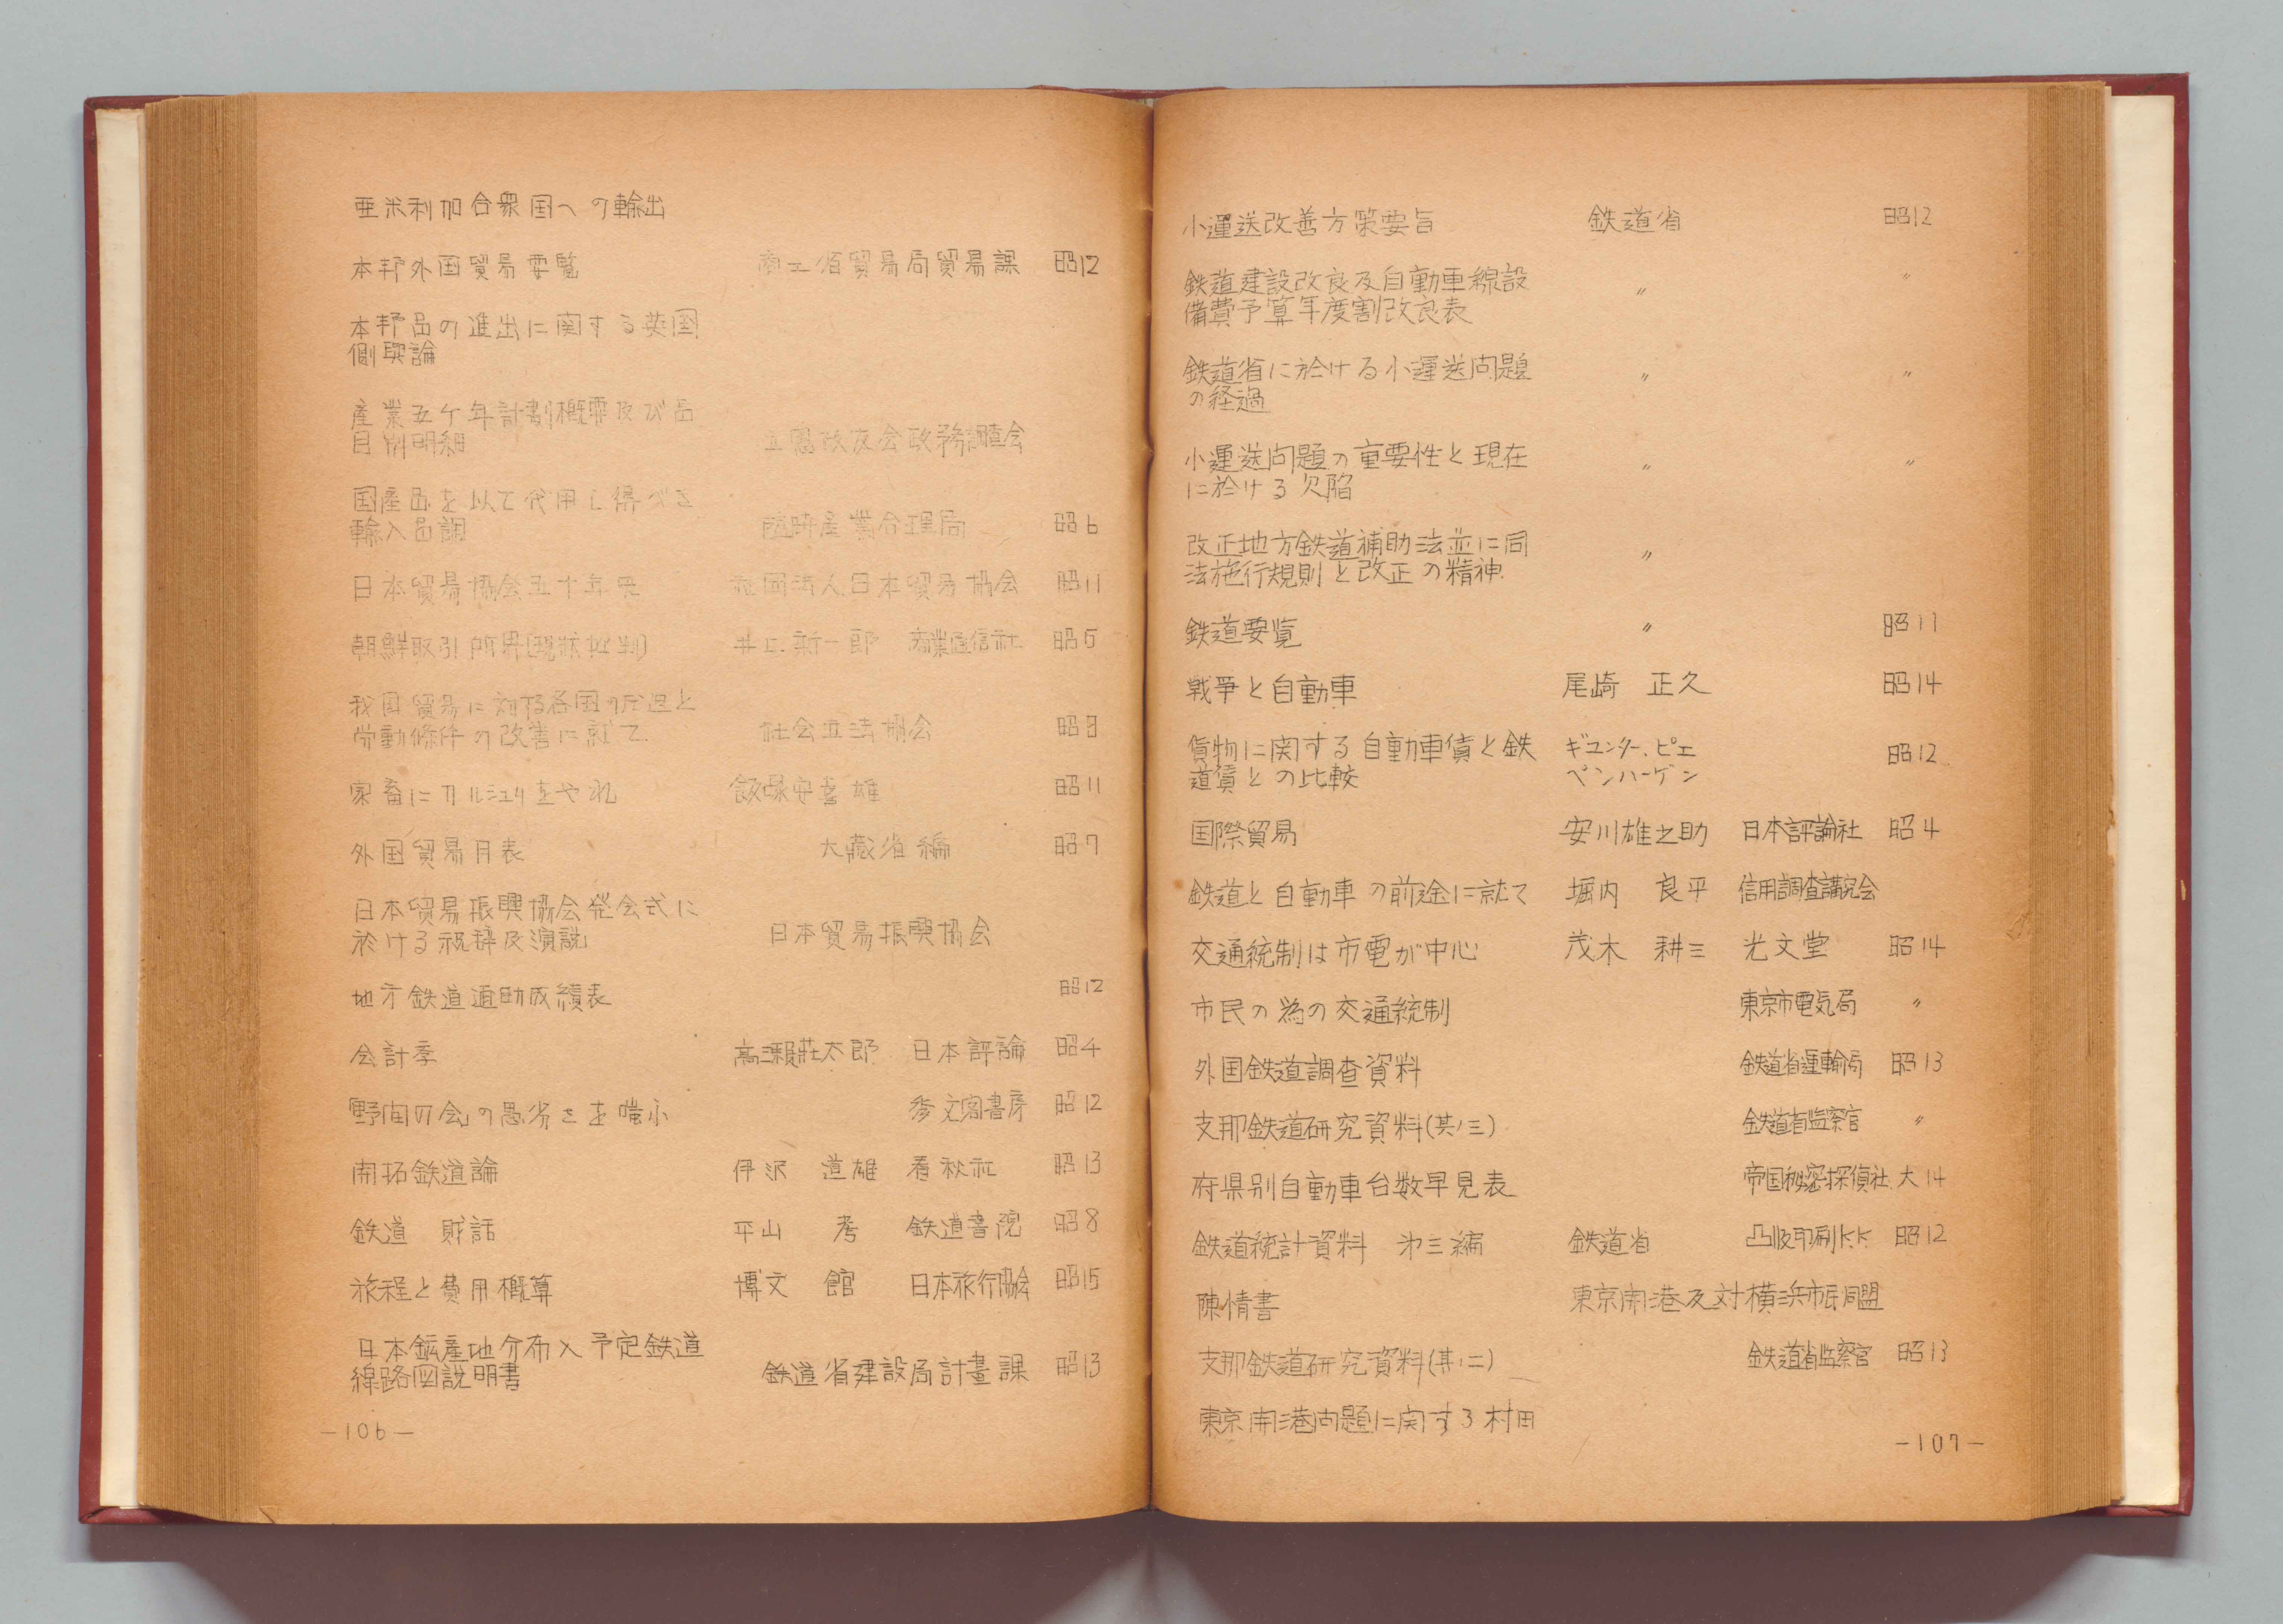 亜米利加合衆国への輸出
本邦外国貿易要覧 商工省貿易局貿易課 昭12
本邦品の進出に関する英国
側輿論
産業五ケ年計劃概要及び品
目別明細 立憲政友会政務調査会
国産品を以て代用し得べき
輸入品調 臨時産業合理局 昭6
日本貿易協会五十年史 社団法人日本貿易協会 昭11
朝鮮取引所界(現状批判) 井口新一郎 商業通信社 昭5
我国貿易に対する各国の圧迫と
労動條件の改善に就て 社会立法協会 昭8
家畜にカルシュウをやれ 飯塚安喜雄 昭11
外国貿易月表 大藏省編 昭7
日本貿易振興協会発会式に
於ける祝辞及演説 日本貿易振興協会
地方鉄道補助成績表 昭12
会計季 高瀬荘太郎 日本評論 昭4
野間の会の愚劣さを嗤ふ 秀文閣書房 昭12
開拓鉄道論 伊沢 道雄 春秋社 昭13
鉄道 財話 平山 孝 鉄道書院 昭8
旅程と費用概算 博文館 日本旅行協会 昭15
日本鉱産地分布入予定鉄道
線路図説明書 鉄道省建設局計畫課 昭13
-106-
小運送改善方策要旨 鉄道省 昭12
鉄道建設改良及自動車線設 〃 〃
備費予算年度割改良表
鉄道省に於ける小運送問題 〃 〃
の経過
小運送問題の重要性と現在 〃 〃
に於ける欠陥
改正地方鉄道補助法並に同 〃
法施行規則と改正の精神
鉄道要覧 〃 昭11
戦爭と自動車 尾崎 正久 昭14
貨物に関する自動車賃と鉄 ギユンター、ピエ 昭12
道賃との比較 ペンハーゲン
国際貿易 安川雄之助 日本評論社 昭4
鉄道と自動車の前途に就て 堀内 良平 信用調査講究会
交通統制は市電が中心 茂木 耕三 光文堂 昭14
市民の為の交通統制 東京市電気局 〃
外国鉄道調査資料 鉄道省運輸局 昭13
支那鉄道研究資料(其ノ三) 鉄道省監察官 〃
府県別自動車台数早見表 帝国秘密探偵社 大14
鉄道統計資料 第三編 鉄道省 凸版印刷K.K. 昭12
陳情書 東京開港反対横浜市民同盟
支那鉄道研究資料(其ノ二) 鉄道省監察官 昭13
東京開港問題に関する村田
-107-